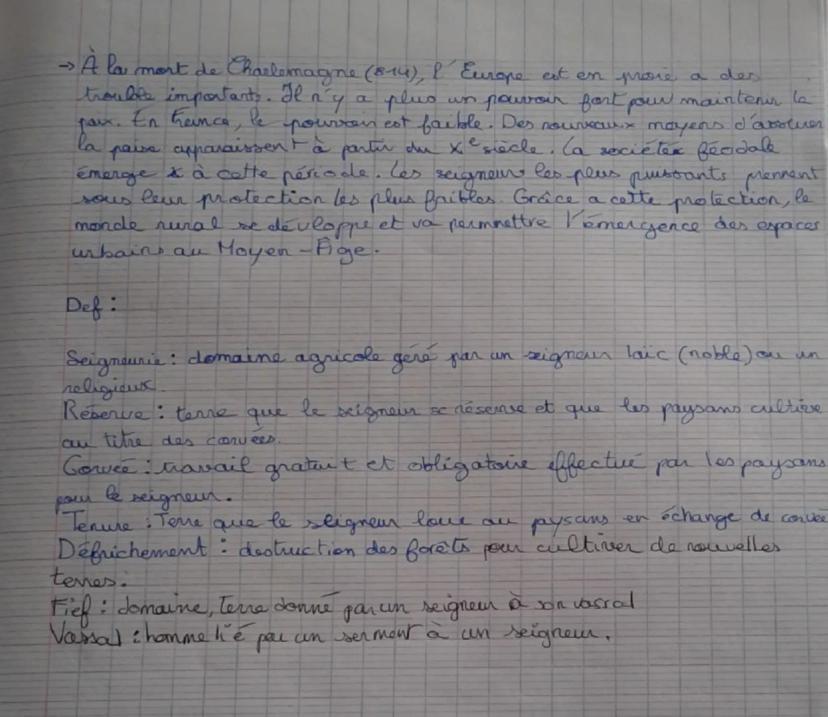 → À la mort de Charlemagne (814), l'Europe est en proie a des
troubles importants. Il n'y a plus un pouvoir fort pour maintenir la
paix. En France, le pouvoir est faible. Des nouveaux moyens d'assurer
la paix apparaissent à partir du Xe siècle. La société féodale
émerge à cette période. Les seigneurs les plus puissants prennent
sous leur protection les plus faibles. Grâce a cette protection, le
monde rural se développe et va permettre l'émergence des espaces
urbains au Moyen-Âge.
Def :
Seigneurie : domaine agricole géré par un seigneur laïc (noble) ou un
religieux.
Réserve : terre que le seigneur se réserve et que les paysans cultive
au titre des corvées.
Corvée : travail gratuit et obligatoire effectué par les paysans
pour le seigneur.
Tenure : Terre que le seigneur loue au paysans en échange de corvée
Défrichement : destruction des forêts pour cultiver de nouvelles
terres.
Fief : domaine, Terre donné par un seigneur à son vassal
Vassal : homme lié par un serment à un seigneur.